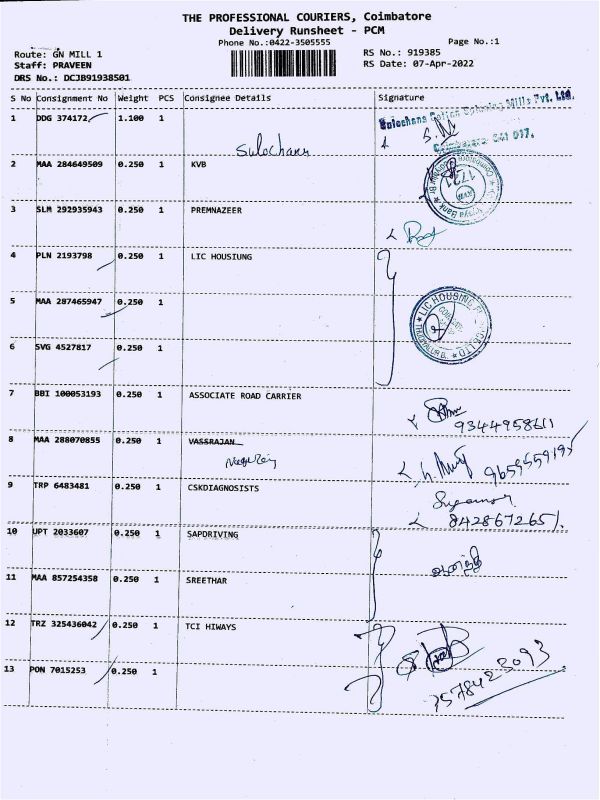 THE PROFESSIONAL COURIERS, Coimbatore
Delivery Runsheet - PCM
Phone No.:0422-3505555 Page No.:1
Route: GN MILL 1 RS No.: 919385
Staff: PRAVEEN RS Date: 07-Apr-2022
DRS No.: DCJB91938501
S No Consignment No Weight PCS Consignee Details Signature
1 DDG 374172 1.100 1
Sulochana
2 MAA 284649509 0.250 1 KVB
3 SLM 292935943 0.250 1 PREMNAZEER
4 PLN 2193798 0.250 1 LIC HOUSIUNG
5 MAA 287465947 0.250 1
LIC HOUSING
6 SVG 4527817 0.250 1
7 BBI 100053193 0.250 1 ASSOCIATE ROAD CARRIER
9344958611
8 MAA 288070855 0.250 1 VASSRAJAN
9 TRP 6483481 0.250 1 CSKDIAGNOSISTS
8428672651
10 UPT 2033607 0.250 1 SAPDRIVING
11 MAA 857254358 0.250 1 SREETHAR
12 TRZ 325436042 0.250 1 TCI HIWAYS
13 PON 7015253 0.250 1
7578423093